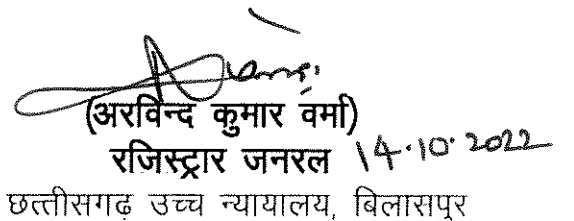 (अरविन्द कुमार वर्मा)
रजिस्ट्रार जनरल 14.10.2022
छत्तीसगढ़ उच्च न्यायालय, बिलासपुर